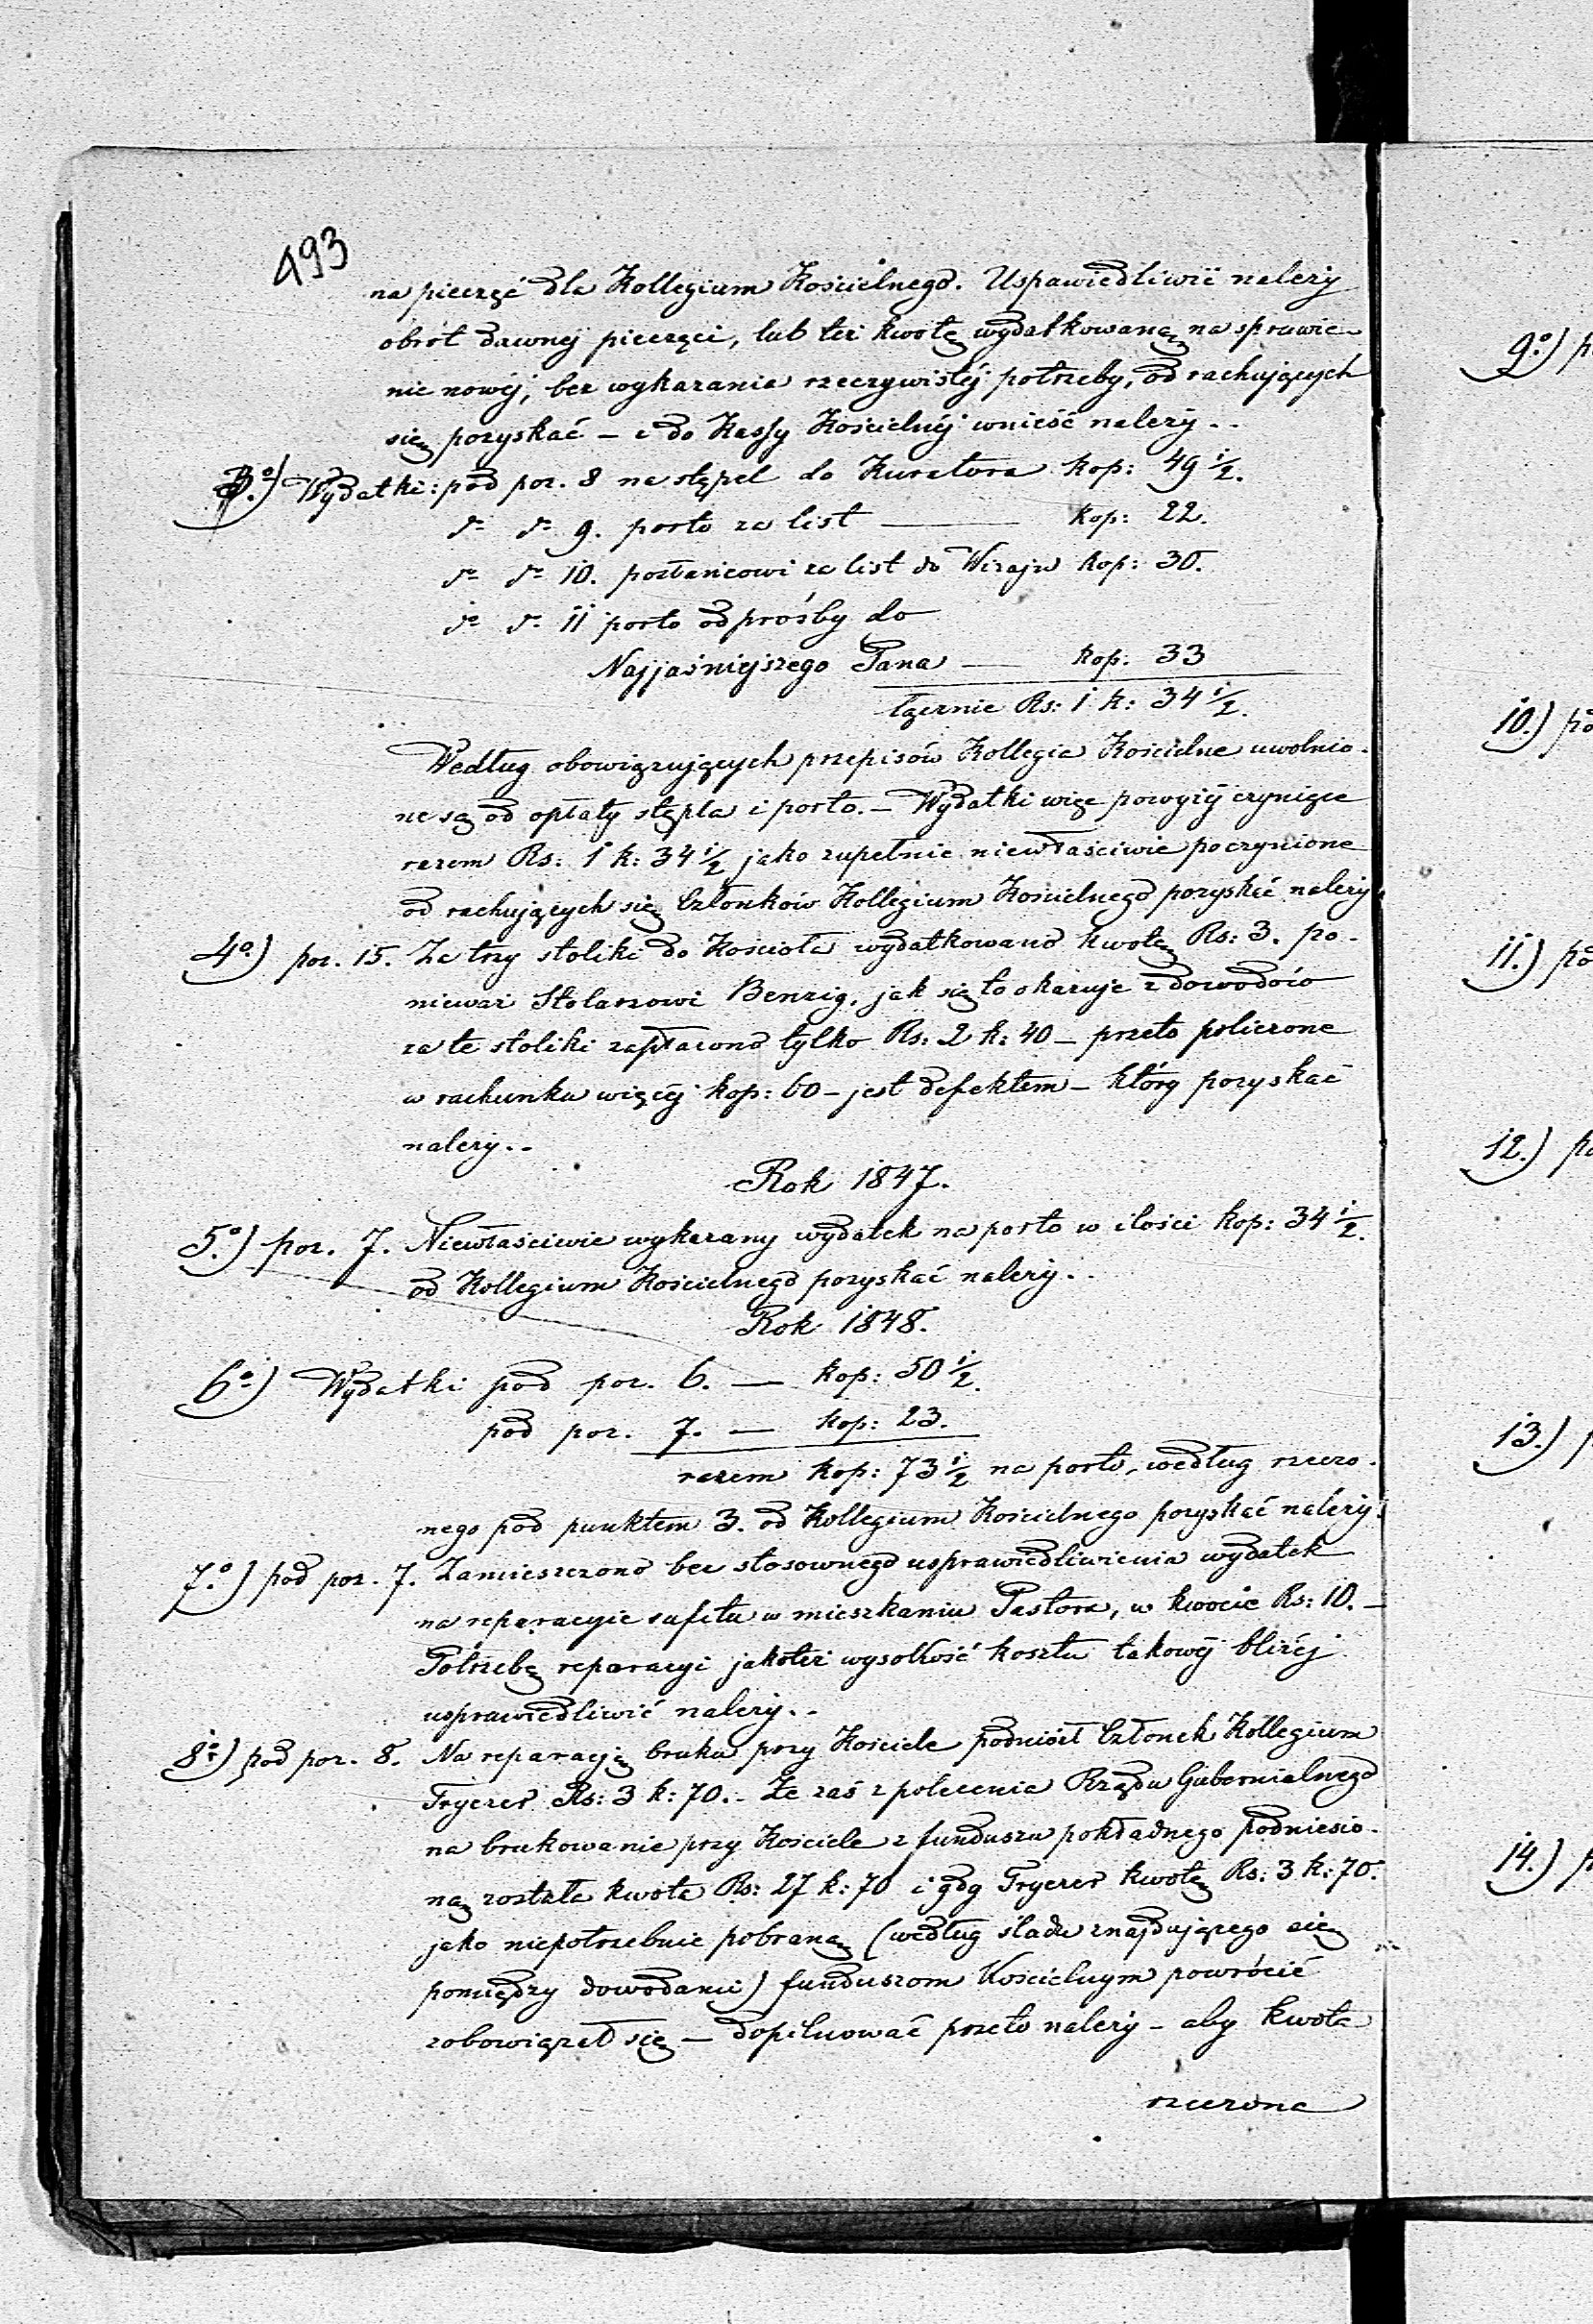 493
na pieczęć dla Kollegium Kościelnego. Uspawiedliwić należy
obrót dawnéj pieczęci, lub też kwotę wydatkowaną na sprawie-
nie nowéj, bez wykazania rzeczywistéj potrzeby, od rachujących
się pozyskać – i do Kassy Kościelnéj wnieść należy. -
3º) Wydatki: pod poz. 8 na stępel do Kuratora kop: 49 ½.
dº dº 9. porto za list — kop: 22.
dº dº 10. posłańcowi za list do Wizajn kop: 30.
dº dº 11 porto od prośby do
Najjaśniejszego Pana — kop: 33
łącznie Rs: 1 k: 34 ½.
Według obowiązujących przepisów Kollegia Kościelne uwolnio-
ne są od opłaty stępla i porto. – Wydatki więc powyżéj czyniące
razem Rs: 1 k: 34 ½ jako zupełnie niewłaściwie poczynione
od rachujących się Członków Kollegium Kościelnego pozyskać należy.
4º) poz. 15. Za trzy stoliki do Kościoła wydatkowano kwotę Rs: 3. po-
nieważ Stolarzowi Benzig, jak się to okazuje z dowodów
za te stoliki zapłacono tylko Rs: 2 k: 40 – przeto policzone
w rachunku więcéj kop: 60 – jest defektem – który pozyskać
należy. -
Rok 1847.
5º) poz. 7. Niewłaściwie wykazany wydatek na porto w ilości kop: 34 ½.
od Kollegium Kościelnego pozyskać należy. -
Rok 1848.
6º) Wydatki pod poz. 6. — kop: 50 ½.
pod poz. 7. — kop: 23.
razem kop: 73 ½ na porto, według rzeczo-
nego pod punktem 3. od Kollegium Kościelnego pozyskać należy.
7º) pod poz. 7. Zamieszczono bez stosownego usprawiedliwienia wydatek
na reparacyie sufitu w mieszkaniu Pastora, w kwocie Rs: 10. –
Potrzebę reparacyi jakoteż wysokość kosztu takowéj bliżéj
usprawiedliwić należy. -
8º) pod poz. 8. Na reparacją bruku przy Kościele podniósł Członek Kollegium
Fryzer Rs: 3 k: 70. - Że zaś z polecenia Rządu Gubernialnego
na brukowanie przy Kościele z funduszu pokładnego podniesio-
ną została kwota Rs: 27 k: 70 i gdy Fryzer kwotę Rs: 3 k: 70.
jako niepotrzebnie pobraną (według śladu znajdującego się
pomiędzy dowodami) funduszom Kościelnym powrócić
zobowiązał się – dopilnować przeto należy – aby kwota
rzeczona
9º) p
10.) po
11.) po
12.) po
13.) p
14.) p